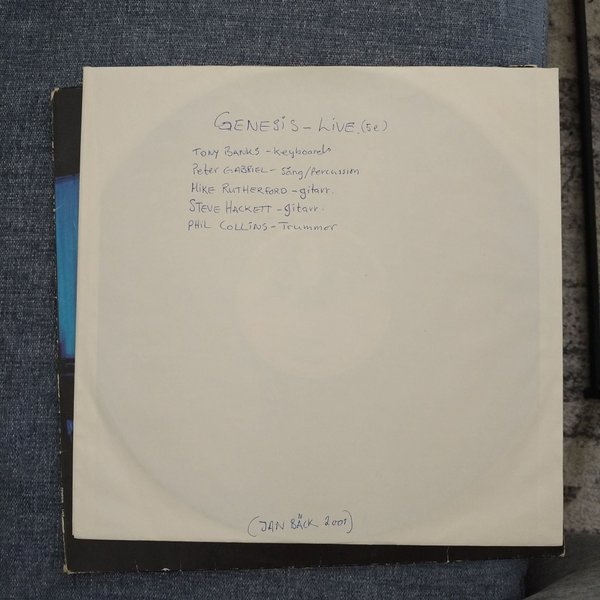 GENESIS - LIVE. (5e)
TONY BANKS - keyboards
Peter GABRIEL - sång/Percussion
MIKE RUTHERFORD - gitarr.
STEVE HACKETT - gitarr.
PHIL COLLINS - Trummor
(JAN BÄCK 2001)